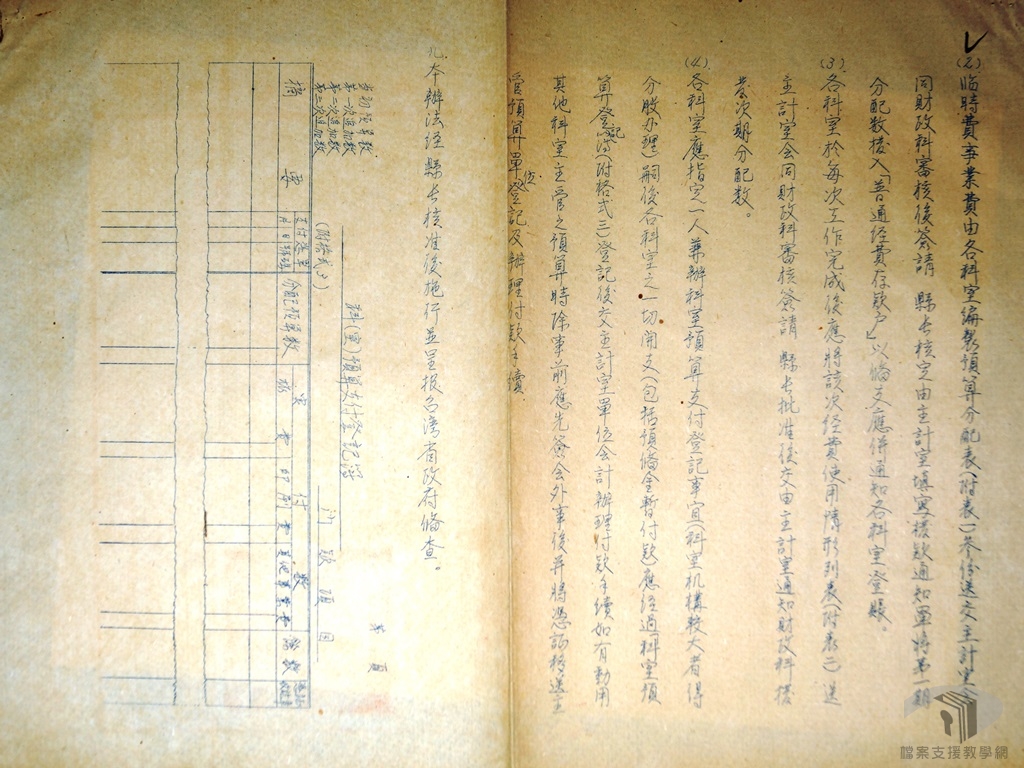 (2)臨時費事業費由各科室編製預算分配表(附表一)叁份送交主計室會
同財政科審核後簽請 縣長核定由主計室填寫撥款通知單將第一期
分配數撥入「普通經費存款戶」以備支應併通知各科室登賬。
(3)各科室於每次工作完成後應將該次經費使用情形列表(附表二)送
主計室會同財政科審核簽請 縣長批准後交由主計室通知財政科撥
發次期分配數。
(4)各科室應指定一人兼辦科室預算支付登記事宜(科室机構較大者得
分股办理)嗣後各科室之一切開支(包括預備金暫付款)應經過科室預
算登記簿(附格式三)登記後交主計室單位会計辦理付款手續如有動用
其他科室主管之預算時除事前應先簽会外事後并將憑証移送主
管預算單位登記及辦理付款手續
九、本辦法經 縣長核准後施行並呈报台湾省政府備查。
第 頁
科(室)預算支付登記簿
門 款 項 目
(附格式3)
原初預算數
第一次追加數
第二次追加數
第三次追加數
摘 要
支付憑單
月 日 號碼
分配預算數
實 付 數
印刷費
其他事業費
餘數
檔案支援教學網